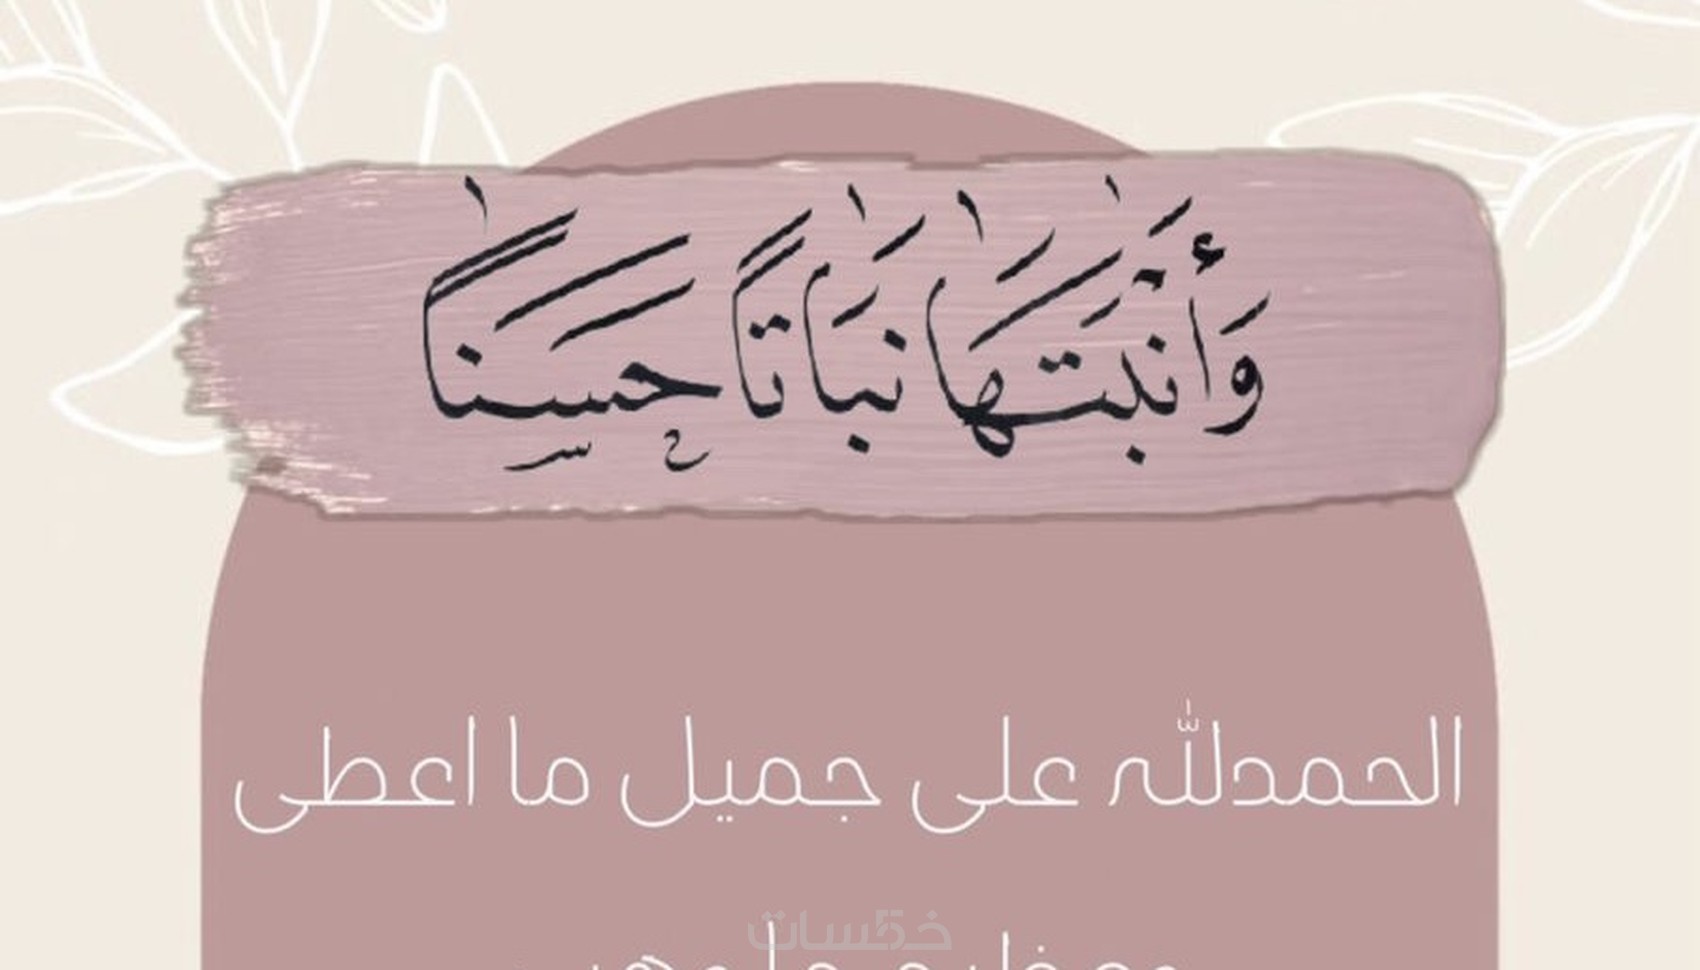 وَأَنْبَتَهَا نَبَاتًا حَسَنًا
الحمدلله على جميل ما اعطى
خمسات